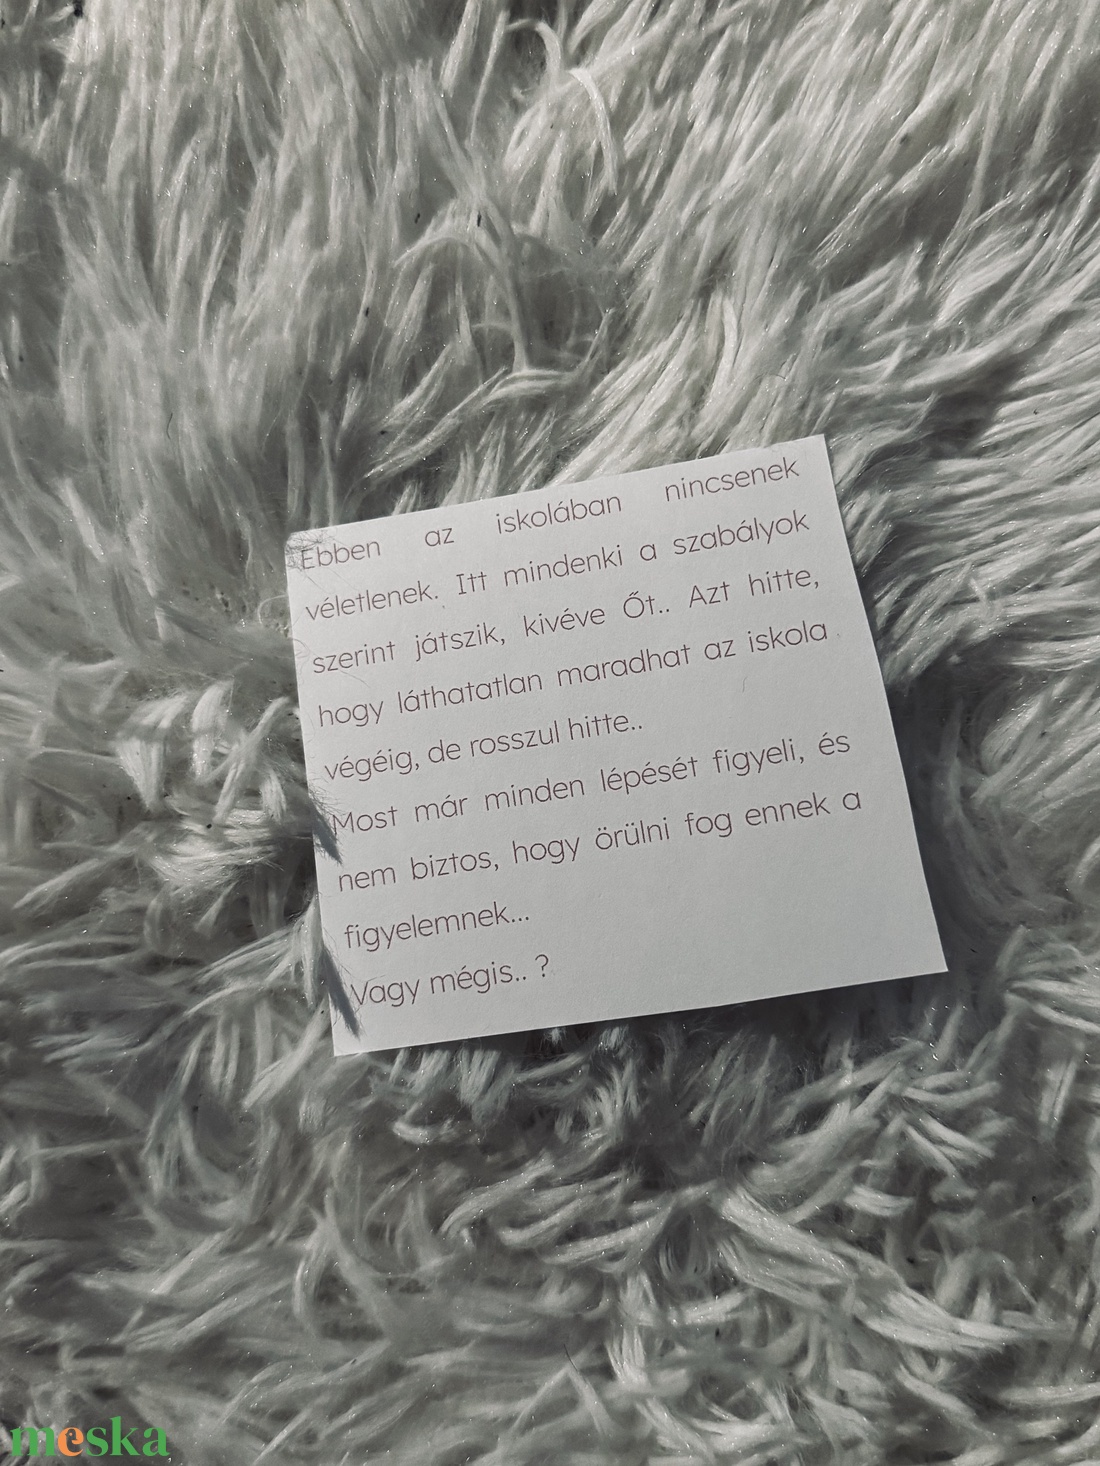 Ebben az iskolában nincsenek
véletlenek. Itt mindenki a szabályok
szerint játszik, kivéve Őt.. Azt hitte,
hogy láthatatlan maradhat az iskola
végéig, de rosszul hitte..
Most már minden lépését figyeli, és
nem biztos, hogy örülni fog ennek a
figyelemnek...
Vagy mégis.. ?
meska